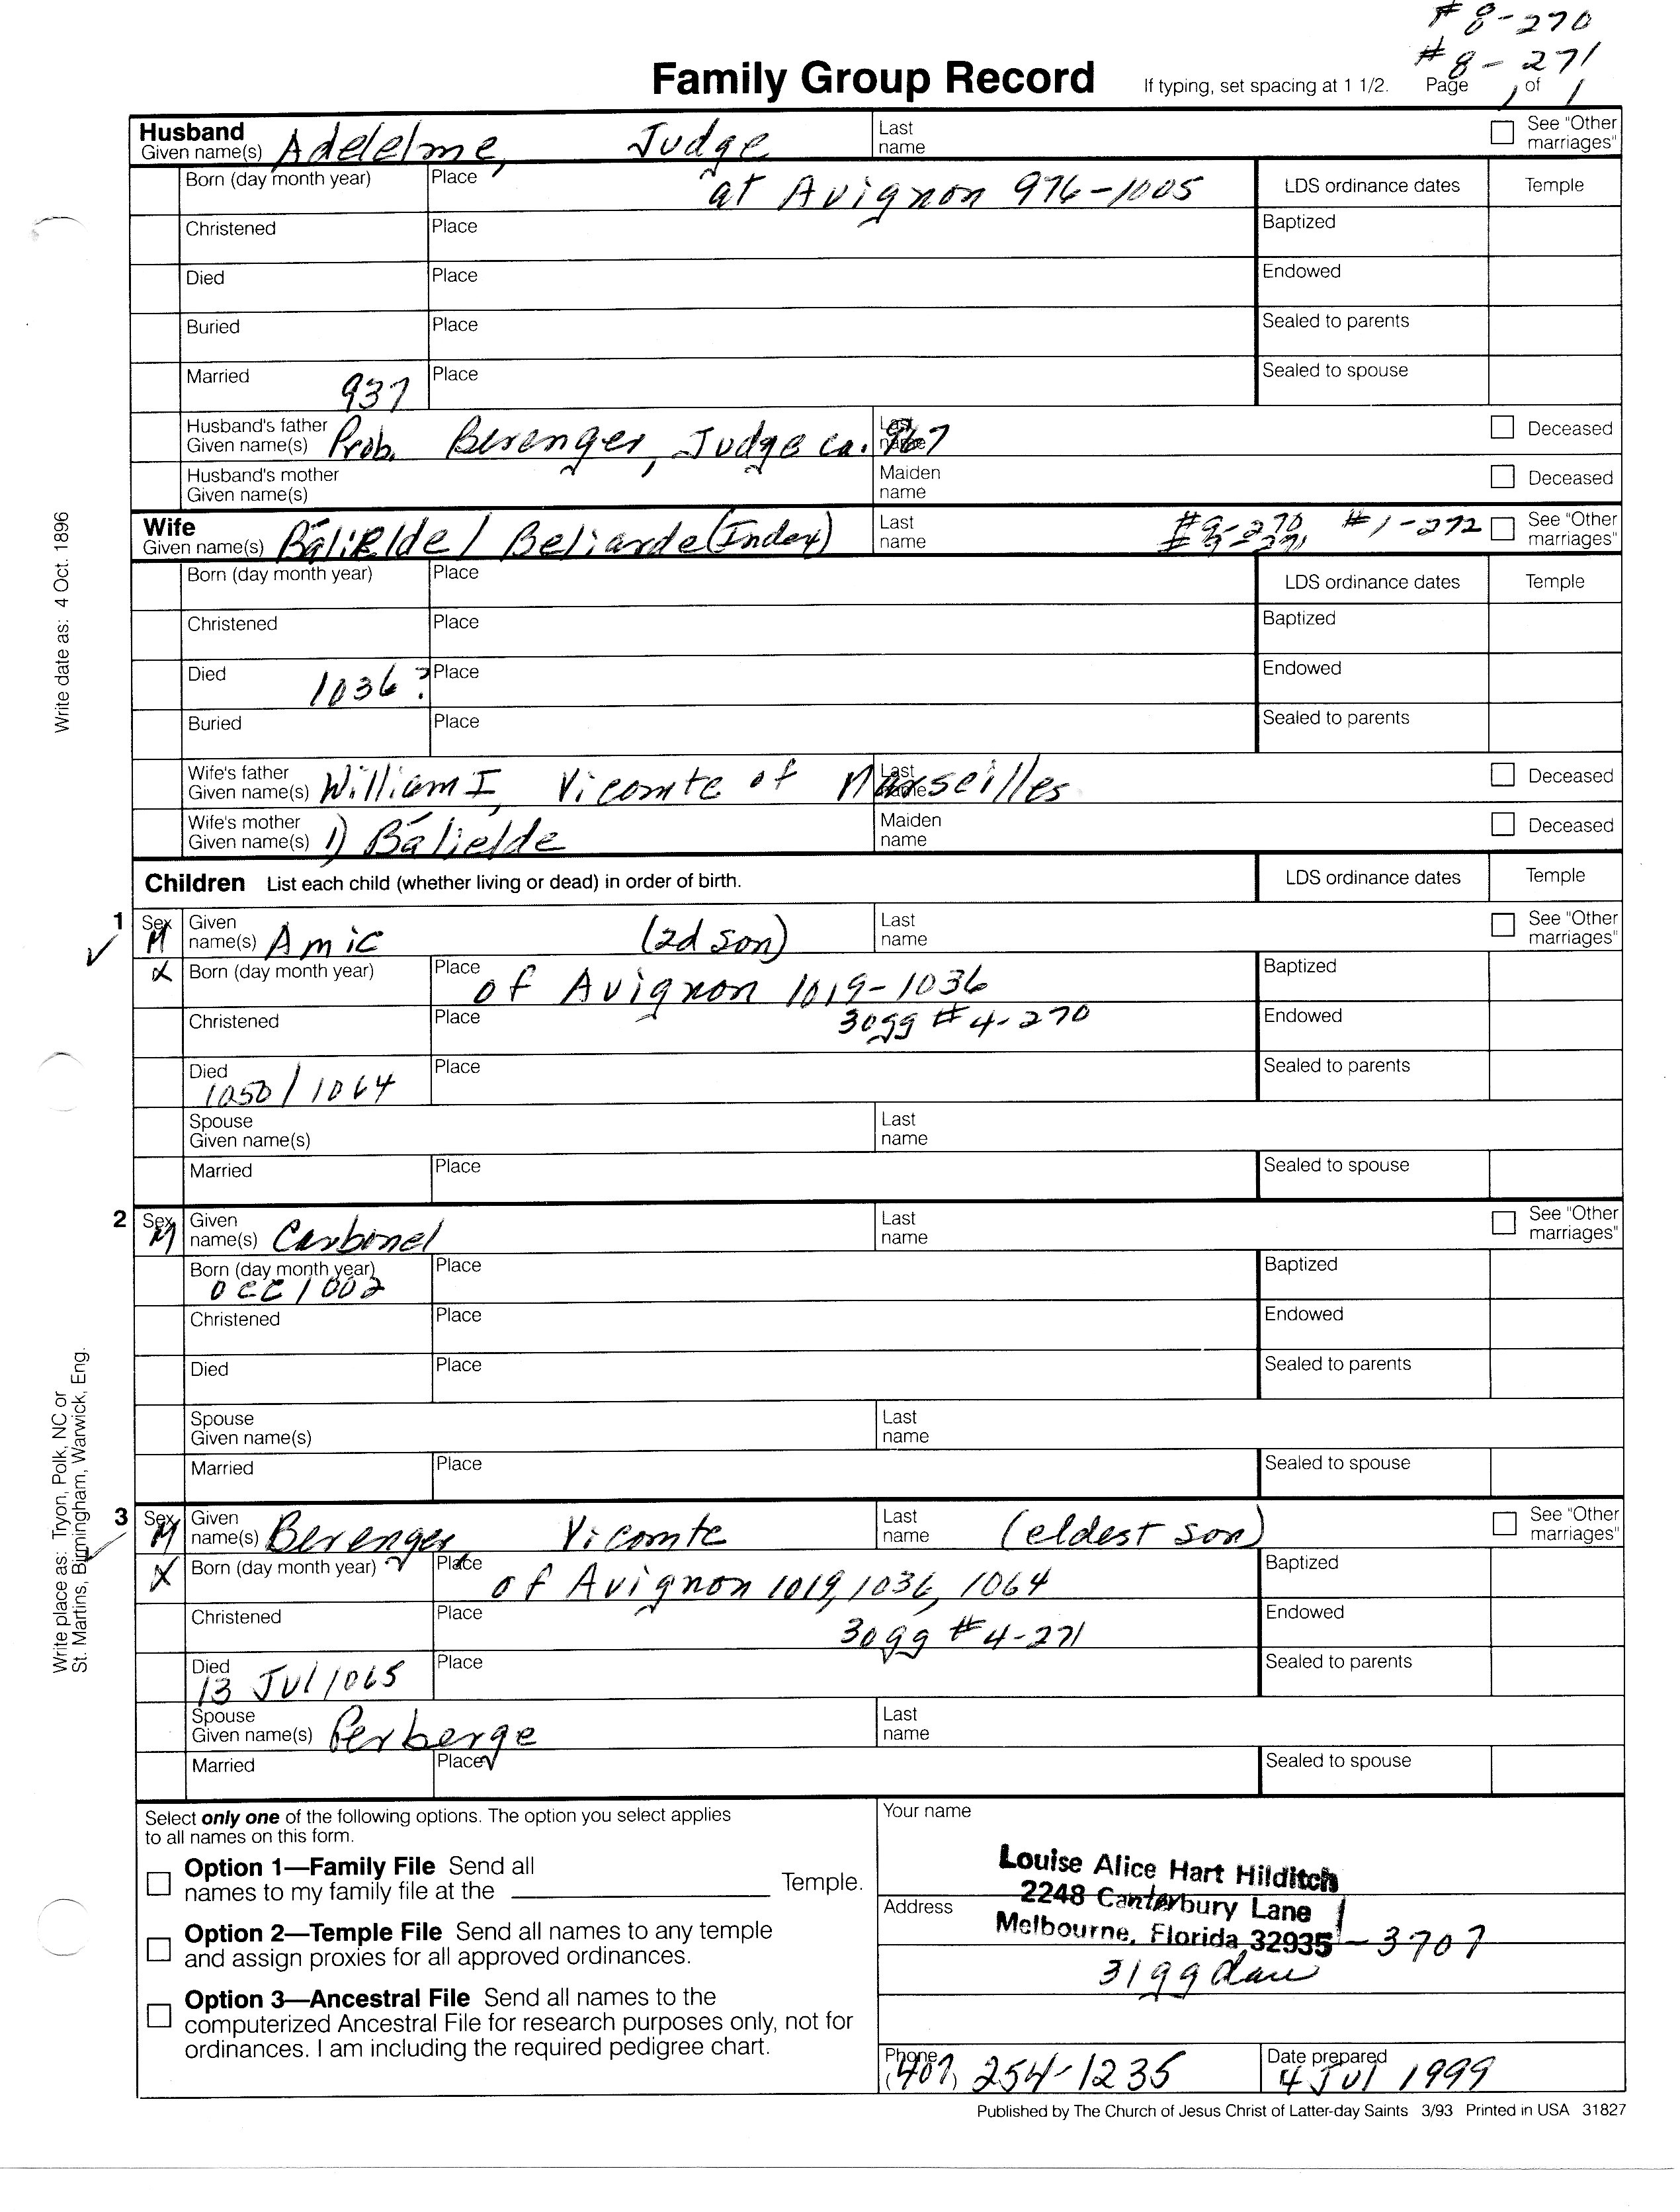 # 8-270
# 8-271
Family Group Record If typing, set spacing at 1 1/2. Page 1 of 1
Husband
Given name(s) Adelelme, Judge Last name See "Other marriages"
Born (day month year) Place at Avignon 976-1005 LDS ordinance dates Temple
Christened Place Baptized
Died Place Endowed
Buried Place Sealed to parents
Married 937 Place Sealed to spouse
Husband's father Given name(s) Prob. Berenger, Judge ca. 967 Last name Deceased
Husband's mother Given name(s) Maiden name Deceased
Wife
Given name(s) Bálielde / Beliarde (Index) Last name #9-270 #1-272 See "Other marriages"
Born (day month year) Place LDS ordinance dates Temple
Christened Place Baptized
Died 1036? Place Endowed
Buried Place Sealed to parents
Wife's father Given name(s) William I, Vicomte of Marseilles Last name Deceased
Wife's mother Given name(s) 1) Bálielde Maiden name Deceased
Children List each child (whether living or dead) in order of birth. LDS ordinance dates Temple
1 Sex M Given name(s) Amic (2d son) Last name See "Other marriages"
X Born (day month year) Place of Avignon 1019-1036 Baptized
Christened Place 30gg #4-270 Endowed
Died 1050/1064 Place Sealed to parents
Spouse Given name(s) Last name
Married Place Sealed to spouse
2 Sex M Given name(s) Carbonel Last name See "Other marriages"
Born (day month year) DEC 1002 Place Baptized
Christened Place Endowed
Died Place Sealed to parents
Spouse Given name(s) Last name
Married Place Sealed to spouse
3 Sex M Given name(s) Berenger Vicomte Last name (eldest son) See "Other marriages"
X Born (day month year) Place of Avignon 1019, 1036, 1064 Baptized
Christened Place 30gg #4-271 Endowed
Died 13 Jul 1065 Place Sealed to parents
Spouse Given name(s) Perberge Last name
Married Place Sealed to spouse
Select only one of the following options. The option you select applies
to all names on this form.
Option 1—Family File Send all
names to my family file at the Temple.
Option 2—Temple File Send all names to any temple
and assign proxies for all approved ordinances.
Option 3—Ancestral File Send all names to the
computerized Ancestral File for research purposes only, not for
ordinances. I am including the required pedigree chart.
Your name
Louise Alice Hart Hilditch
Address
2248 Canterbury Lane
Melbourne, Florida 32935-3707
31gg dau
Phone (407) 254-1235
Date prepared 4 Jul 1999
Published by The Church of Jesus Christ of Latter-day Saints 3/93 Printed in USA 31827
Write date as: 4 Oct. 1896
Write place as: Tryon, Polk, NC or
St. Martins, Birmingham, Warwick, Eng.